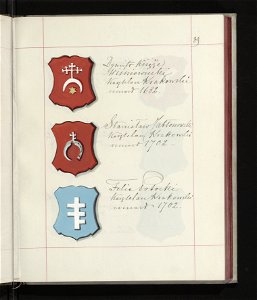 39
Dymitr Książę
Wiśniowiecki
Kasztelan Krakowski
umarł 1682.
Stanisław Jabłonowski
Kasztelan Krakowski
umarł 1702
Felix Potocki
Kasztelan Krakowski
umarł 1702.